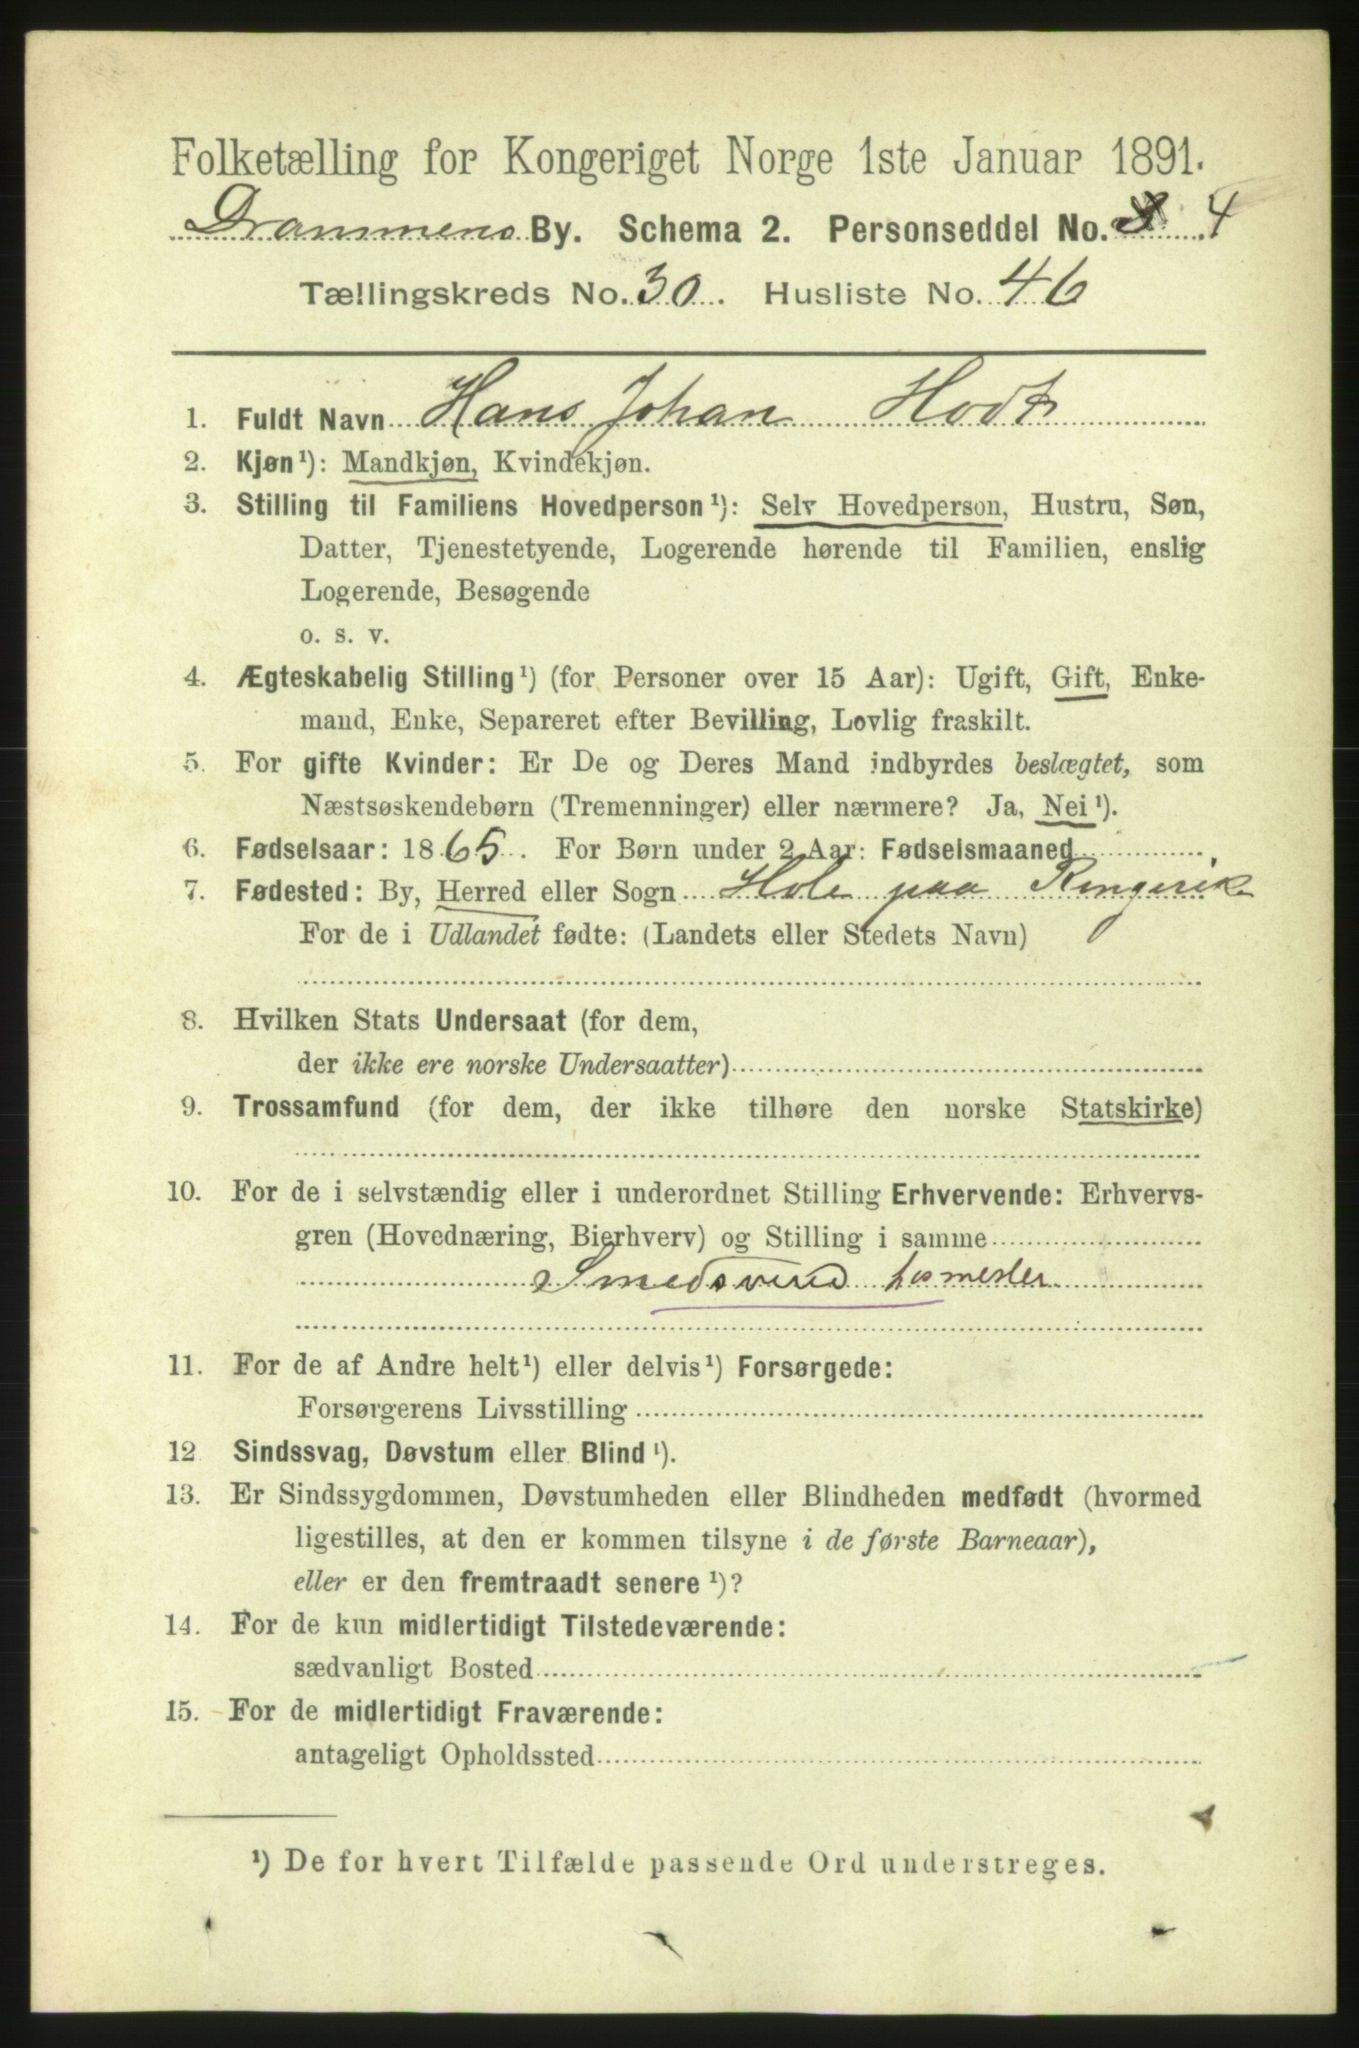 Folketælling for Kongeriget Norge 1ste Januar 1891.
Drammens By. Schema 2. Personseddel No. 4
Tællingskreds No. 30. Husliste No. 46
1. Fuldt Navn Hans Johan Hodt
2. Kjøn¹): Mandkjøn, Kvindekjøn.
3. Stilling til Familiens Hovedperson¹): Selv Hovedperson, Hustru, Søn,
Datter, Tjenestetyende, Logerende hørende til Familien, enslig
Logerende, Besøgende
o. s. v.
4. Ægteskabelig Stilling¹) (for Personer over 15 Aar): Ugift, Gift, Enke-
mand, Enke, Separeret efter Bevilling, Lovlig fraskilt.
5. For gifte Kvinder: Er De og Deres Mand indbyrdes beslægtet, som
Næstsøskendebørn (Tremenninger) eller nærmere? Ja, Nei¹).
6. Fødselsaar: 1865. For Børn under 2 Aar: Fødselsmaaned
7. Fødested: By, Herred eller Sogn Hole paa Ringerike
For de i Udlandet fødte: (Landets eller Stedets Navn)
8. Hvilken Stats Undersaat (for dem,
der ikke ere norske Undersaatter)
9. Trossamfund (for dem, der ikke tilhøre den norske Statskirke)
10. For de i selvstændig eller i underordnet Stilling Erhvervende: Erhvervs-
gren (Hovednæring, Bierhverv) og Stilling i samme
Smedsvend hos mester
11. For de af Andre helt¹) eller delvis¹) Forsørgede:
Forsørgerens Livsstilling
12 Sindssvag, Døvstum eller Blind¹).
13. Er Sindssygdommen, Døvstumheden eller Blindheden medfødt (hvormed
ligestilles, at den er kommen tilsyne i de første Barneaar),
eller er den fremtraadt senere¹)?
14. For de kun midlertidigt Tilstedeværende:
sædvanligt Bosted
15. For de midlertidigt Fraværende:
antageligt Opholdssted
¹) De for hvert Tilfælde passende Ord understreges.